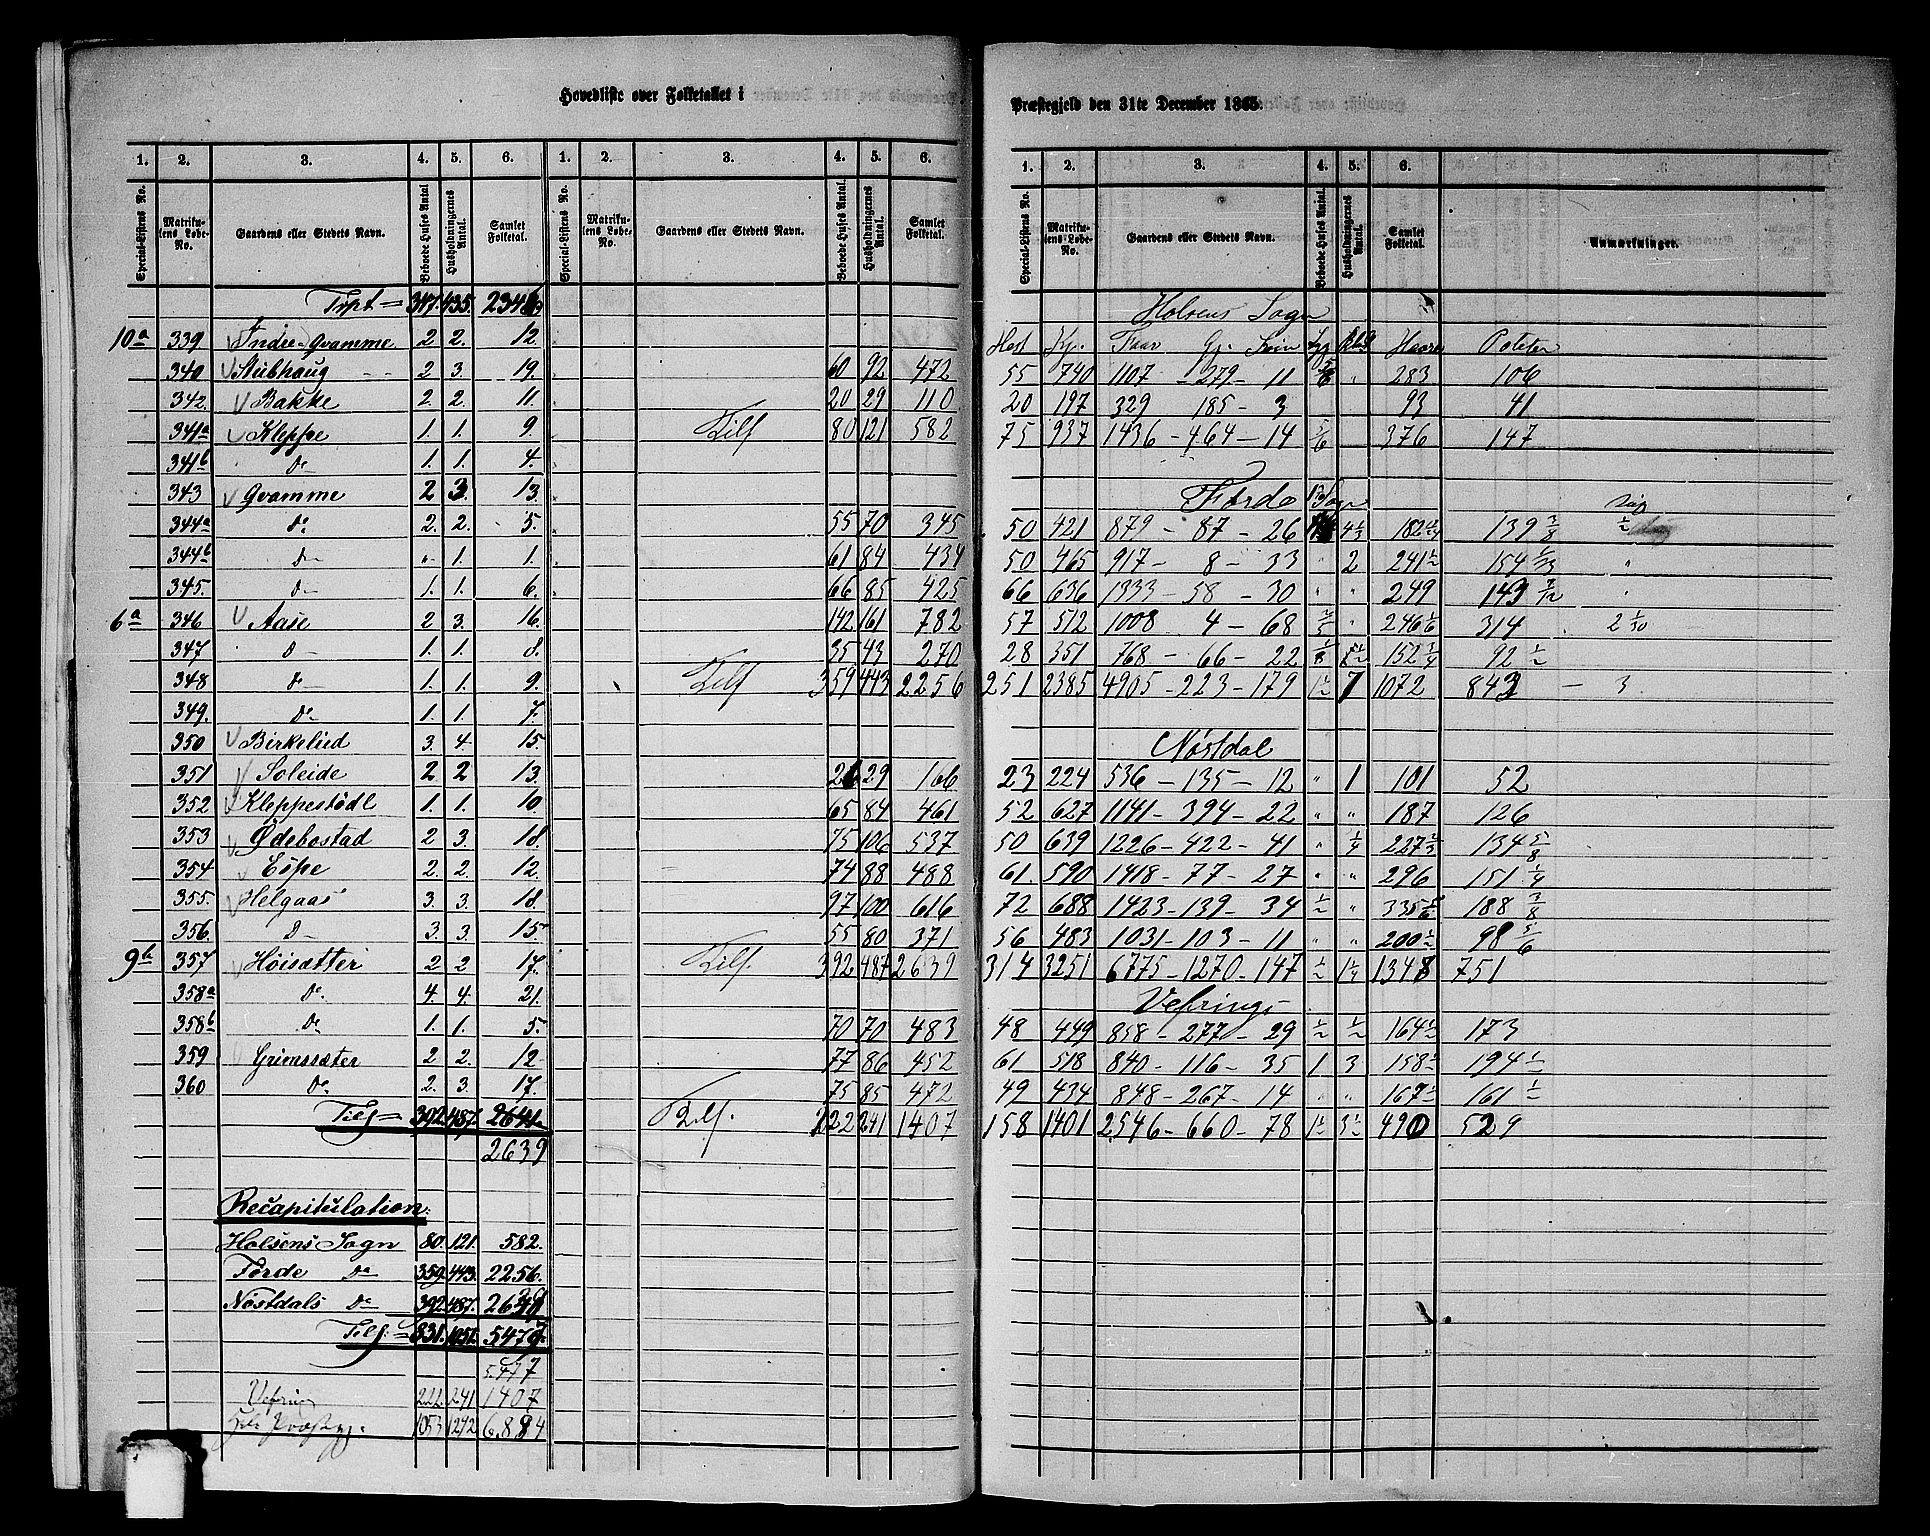 Hovedliste over Folketallet i
Præstegjeld den 31te December 1865.
1. 2. 3. 4. 5. 6. 1. 2. 3. 4. 5. 6.
Special-Listens No. Matrikulens Løbe-No. Gaardens eller Stedets Navn. Beboede Huses Antal Husholdningernes Antal. Samlet Folketal. Special-Listens No. Matrikulens Løbe-No. Gaardens eller Stedets Navn. Beboede Huses Antal. Husholdningernes Antal. Samlet Folketal.
Trpt = 347. 435.
10a 339 Indre-Qvamme 2 2. 12.
340 Stubhaug 2 3. 19. 60 92 472
342. Bakke 2. 2. 11. 20 29 110
341a Kleppe 1. 1. 9. Tils 80 121 582
341b Do 1. 1. 4.
343 Qvamme 2 3. 13.
344a Do 2. 2. 5. 55 70 345
344b Do " 1. 1. 61 84 434
345. Do 1. 1. 6. 66 85 425
6a 346 Aase 2 3. 16. 142 161 782
347. Do 1. 1. 8. 35 43 270
348 Do 1. 1. 9. Tils 359 443 2256
349. Do 1. 1. 7.
350 Birkelied 3. 4. 15.
351 Soleide 2 2 13. 26 29 166
352 Kleppestödl 1. 1. 10. 65 84 461
353 Ødebostad 2 3. 18. 75 106 537
354 Löpe 2. 2. 12. 74 88 488
355. Helgaas 3. 3. 18. 97 100 616
356. Do 3. 3. 15. 55 80 371
9b 357 Höisætter 2 2 17. Tils. 392 487 2639
358a Do 4. 4. 21.
358b Do 1. 1. 5. 70 70 483
359 Grimssæter 2 2. 12 77 86 452
360 Do 2. 3. 17. 75 85 472
Tils = 392. 487. 2641. Tils. 222 241 1407
2639
Recapitulation:
Holsens Sogn 80. 121. 582.
Førde Do 359. 443. 2256.
Nöstdals Do 392. 487.
Tils: = 831. 1051.
5.477
Vefring 222. 241 1407
1053 1272 6.884
1. 2. 3. 4. 5. 6.
Special-Listens No. Matrikulens Løbe-No. Gaardens eller Stedets Navn. Beboede Huses Antal. Husholdningernes Antal. Samlet Folketal. Anmærkninger.
Holsens Sogn
Hest Kj. Faar Gj. Sviin Rug Havre Poteter
55 740 1107 - 279 - 11 5/6 " 283 106
20 197 329 185 - 3 93 41
75 937 1436 - 464 - 14 5/6 376 147
Førde Sogn
50 421 879 - 87 - 26 4 1/3 139 3/8 1/2
50 465 917 - 8 - 33 " 2 241 1/2 "
66 636 1333 - 58 - 30 " " 249 149 7/12 "
57 512 1008 4 - 68 2/5 " 246 1/6 314 2 1/10
28 351 768 - 66 - 22 1/8 152 3/4 92 1/2
251 2385 4905 - 223 - 179 1 1/2 7 1072 843 - 3.
Nöstdal
23 224 536 - 135 - 12 " 1 101 52
52 627 1141 - 394 - 22 " " 187 126
50 639 1226 - 422 - 41 " 1/4 227 2/3 134 5/8
61 590 1418 - 77 - 27 " " 296 151 1/4
72 688 1423 - 139 - 34 1/2 " 335 5/6 188 3/8
56 483 1031 - 103 - 11 " " 200 1/2 98 5/6
314 3251 6775 - 1270 - 147 1/2 1 1/4 1348 751
Vefrings
48 449 858 - 277 - 29 1/2 1/2 164 1/2 173
61 518 840 - 116 - 35 1 3 158 1/2 194 1/2
49 434 848 - 267 - 14 " " 167 1/2 161 1/2
158 1401 2546 - 660 - 78 1 1/2 3 1/2 490 529